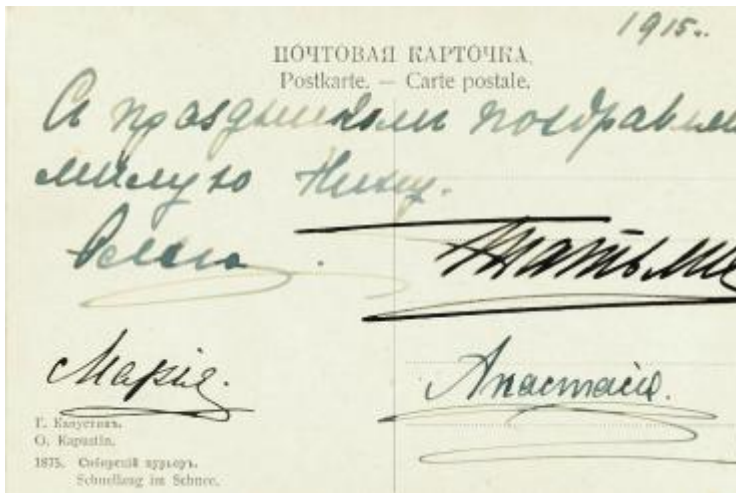 1915..
ПОЧТОВАЯ КАРТОЧКА.
Postkarte. — Carte postale.
Съ праздникомъ поздравля
милую Нину.
Ольга.
Татьяна
Марія.
Анастасія.
Г. Капустинъ.
O. Kapustin.
1875. Сибирскій курьеръ.
Schnellzug im Schnee.